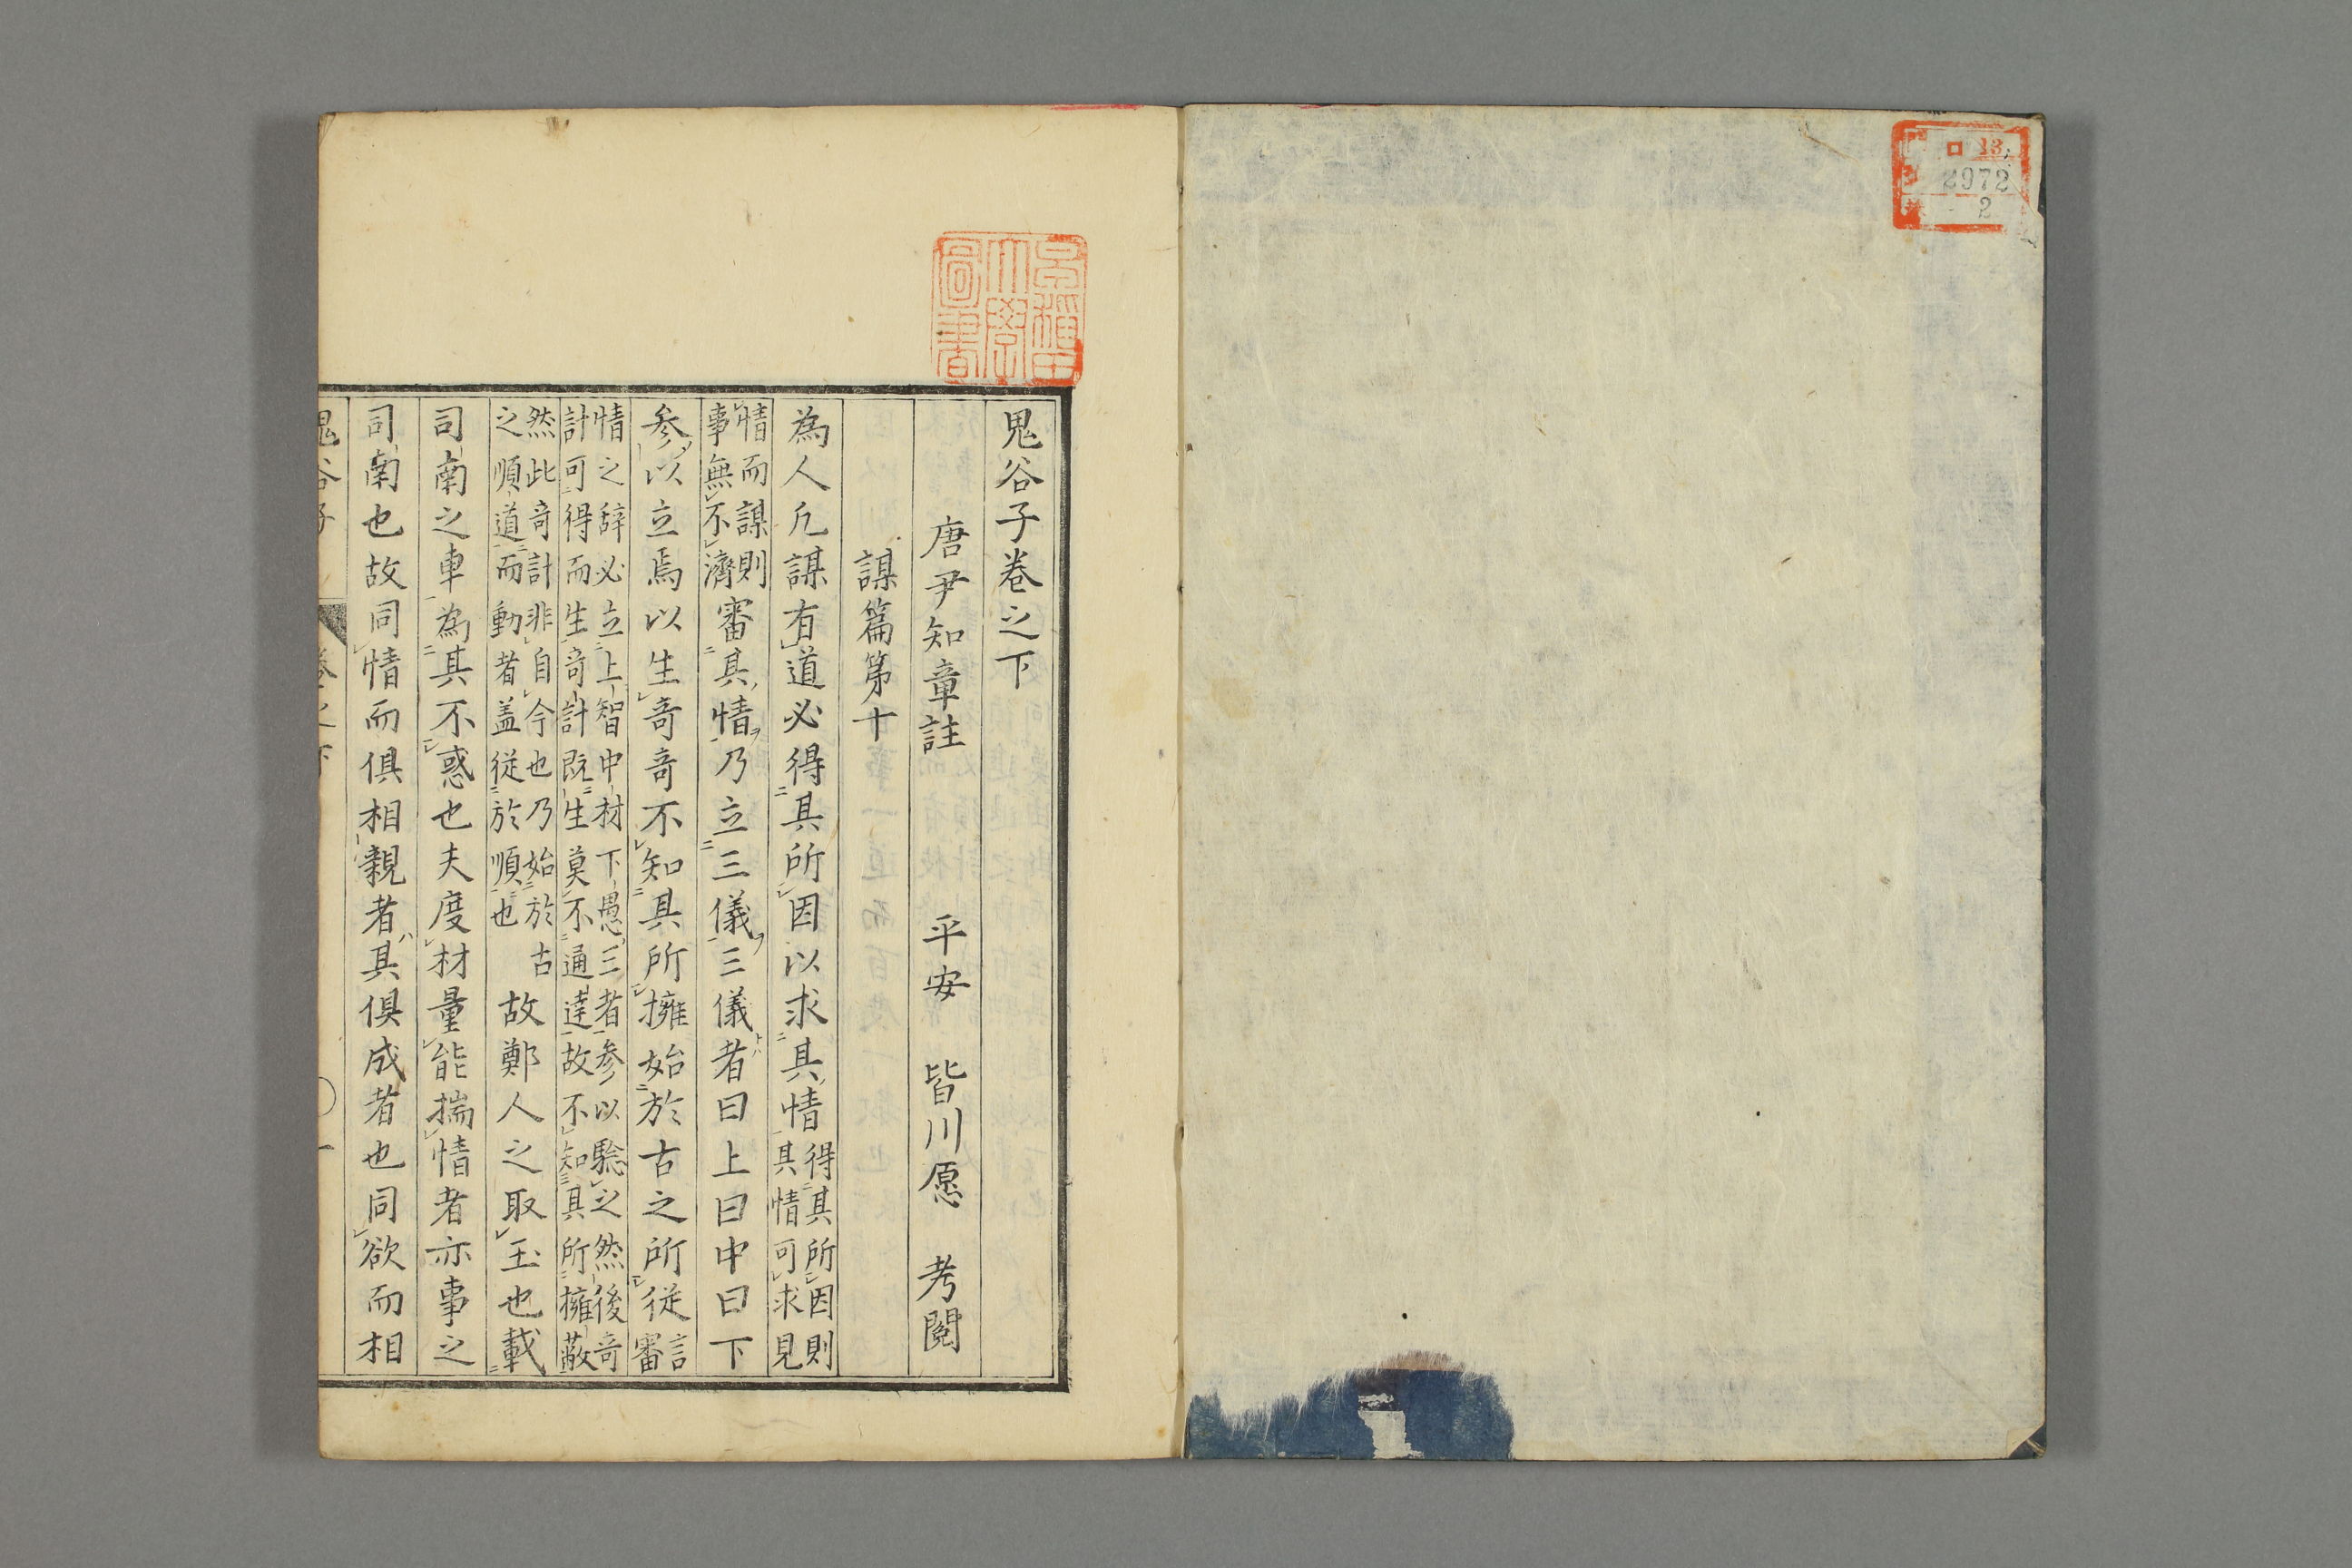 ロ 13
2972
2
早稲田
大學
圖書
鬼谷子巻之下
唐尹知章註 平安 皆川愿 考閲
謀篇第十
為人凢謀有道必得其所因以求其情得其所因則其情可求見
情而謀則事無不濟審其情乃立三儀三儀者曰上曰中曰下
参以立焉以生竒竒不知其所擁始於古之所従言審
情之辞必立上智中材下愚三者参以驗之然後竒計可得而生竒計既生莫不通達故不知其所擁蔽
然此竒計非自今也乃始於古之順道而動者盖従於順也故鄭人之取玉也載
司南之車為其不惑也夫度材量能揣情者亦事之
司南也故同情而俱相親者其俱成者也同欲而相
鬼谷子 巻之下 一